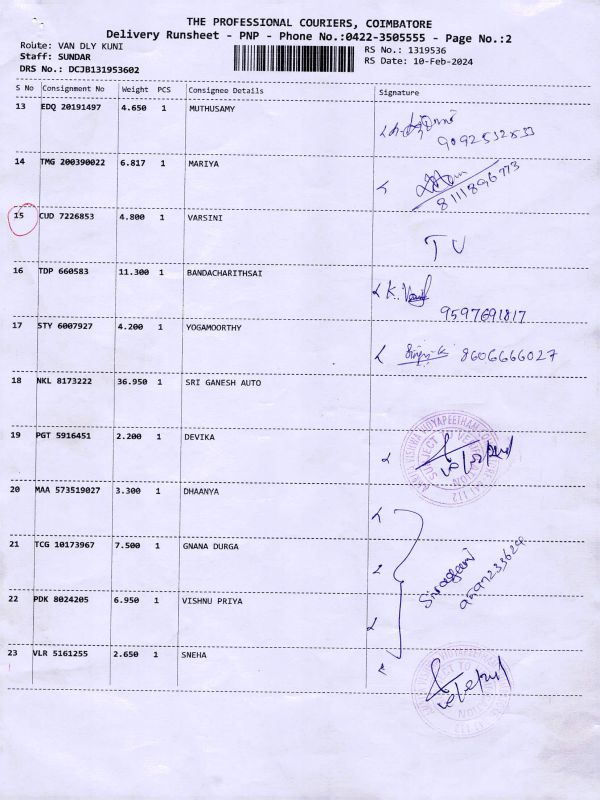 THE PROFESSIONAL COURIERS, COIMBATORE
Delivery Runsheet - PNP - Phone No.:0422-3505555 - Page No.:2
Route: VAN DLY KUNI RS No.: 1319536
Staff: SUNDAR RS Date: 10-Feb-2024
DRS No.: DCJB131953602
S No Consignment No Weight PCS Consignee Details Signature
13 EDQ 20191497 4.650 1 MUTHUSAMY
9092532833
14 TMG 200390022 6.817 1 MARIYA
8111896773
15 CUD 7226853 4.800 1 VARSINI
TU
16 TDP 660583 11.300 1 BANDACHARITHSAI
K.
9597691817
17 STY 6007927 4.200 1 YOGAMOORTHY
8606666027
18 NKL 8173222 36.950 1 SRI GANESH AUTO
19 PGT 5916451 2.200 1 DEVIKA
20 MAA 573519027 3.300 1 DHAANYA
21 TCG 10173967 7.500 1 GNANA DURGA
22 PDK 8024205 6.950 1 VISHNU PRIYA
23 VLR 5161255 2.650 1 SNEHA